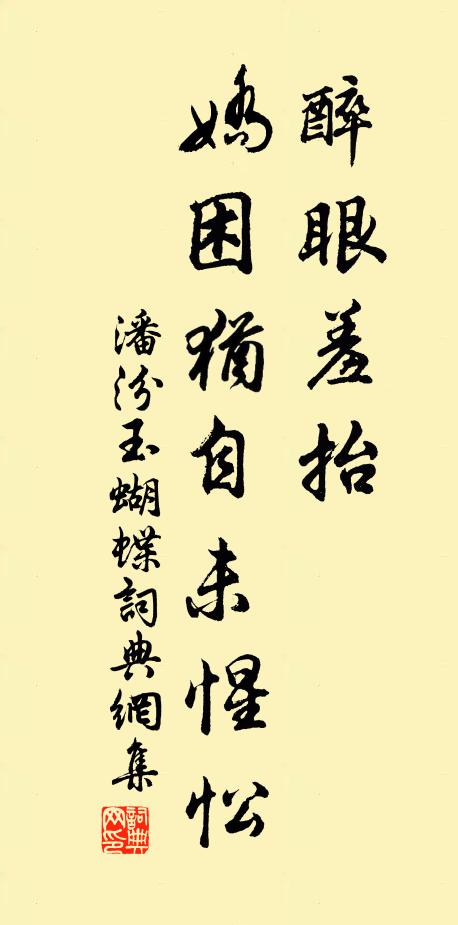 醉眼羞抬
嬌困猶自未惺忪
潘汾玉蝴蝶詞典網集
詞典網印